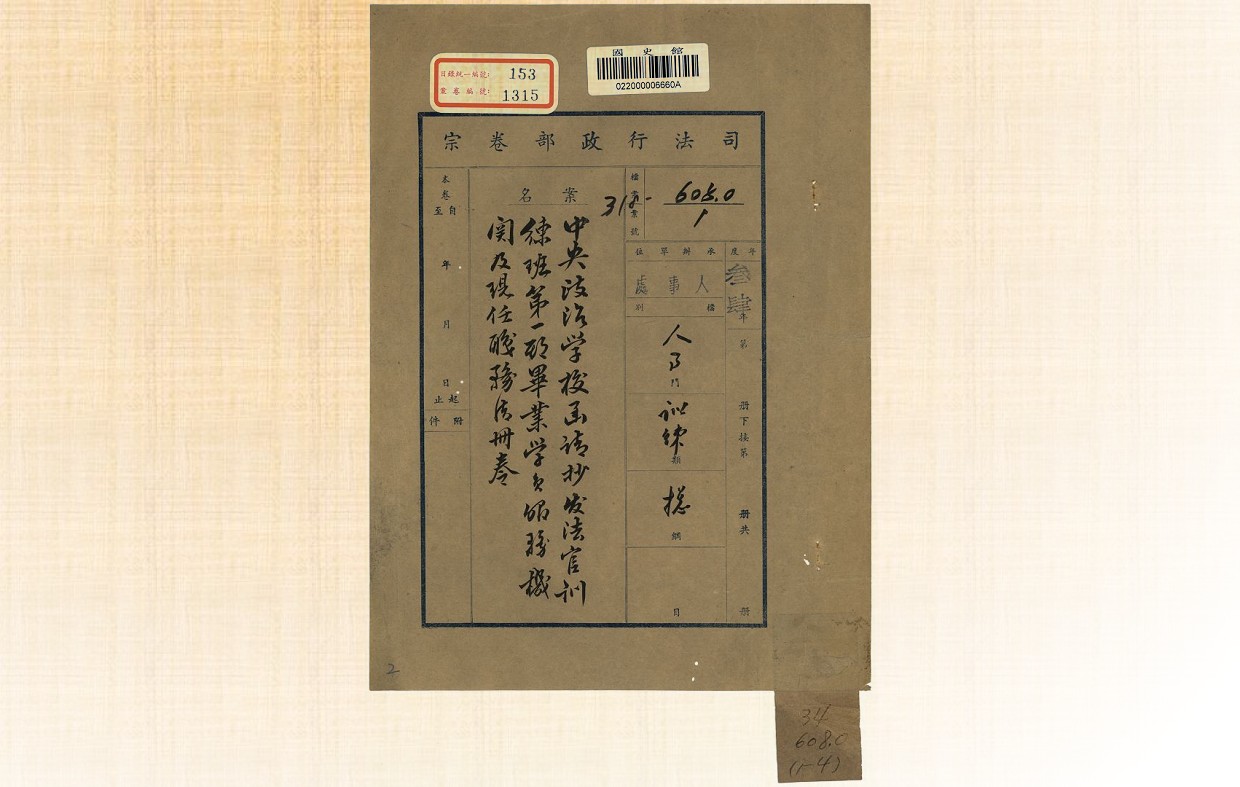 國史館
022000006660A
目錄統一編號: 153
案卷編號: 1315
司法行政部卷宗
檔案
案號
605.0
1
年度
叁肆年
第
册下接第
册共
册
承辦單位
人事處
檔別
人事門
訓練類
總綱
目
案名
中央政治学校函請抄发法官訓
練班第一期畢業学員服務機
関及現任職務清冊卷
本卷
自至
年
月
日
起止
附件
2
34
608.0
(1-4)